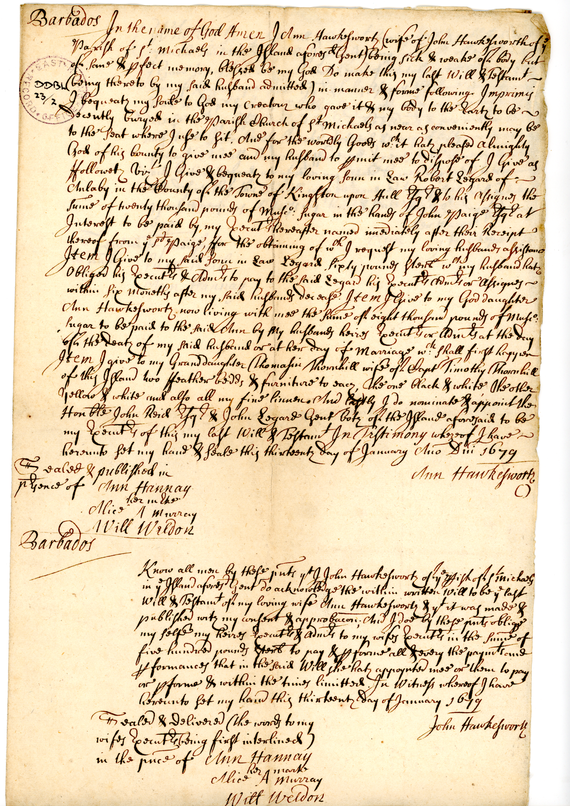 Barbados
In the name of God Amen I Ann Hawkesworth (wife of John Hawkesworth of ye
Parish of St. Michaels in the Island aforesd Gent) being sick & weake of body but
of sane & pfect memory, blessed be my God Do make this my last Will & Testamt
(being thereto by my said husband admitted) in manner & forme following. Imprimis
I bequeat my soule to God my Creatour who gave it & my body to the Earth to be
decently buryed in the Parish Church of St Michaels as near as conveniently may be
to the seat where I use to sit. And for the worldly Goods wch it hath pleased Almighty
God of his bounty to give mee and my husband to pmit mee to dispose of I give as
followeth Vizt I Give & bequeath to my loving sonn in Law Robert Legard of
Anlaby in the County of the Towne of Kingston upon Hull Esqr & to his Assignes the
sume of twenty thousand pounds of Musco: sugar in the hands of John Paige Esqr at
Interest to be paid by my Execut hereafter named imediately after their Receipt
thereof from ye sd Paige, for the obtaining of wch I request my loving husbands assistance
Item I Give to my said sonn in Law Legard Sixty pounds sterl wch my husband hath
obliged his Executrs & Admrs to pay to the said Legard his Executrs Admrs or Assignes
within six Moneths after my said husbands decease Item I Give to my God daughter
Ann Hawkesworth now living with mee the sume of eight thousand pounds of Musco:
sugar to be paid to the said Ann by my husbands heires Executrs or Admrs at the day
of the death of my said husband or at her day of Marriage wch shall first happen
Item I give to my Grandaughter Thomasin Thornhill wife of Capt Timothy Thornhill
of this Island two feather bedds & furniture to each the one black & white the other
yellow & white and also all my fine linnen And lastly I do nominate & appoint the
Honble John Reid Esqr & John Legard Gent both of the Island aforesaid to be
my Executrs of this my last Will & Testamt In Testimony whereof I have
hereunto set my hand & seale this thirteenth day of January Ano Dni 1679
Ann Hawkesworth
Sealed & published in
psence of Ann Hannay
her marke
Alice A Murray
Will Weldon
Barbados
Know all men by these psnts yt I John Hawkesworth of ye pish of St Michaels
in ye Island aforesd Gent do acknowledge the within written Will to be ye last
Will & Testamt of my loving wife Ann Hawkesworth & yt it was made &
published with my consent & approbacon And I doe by these psnts oblige
my selfe my heires Executrs & Admrs to my wifes Executrs in the sume of
five hundred pounds sterl to pay & pforme all & every the paymts and
pformances that in the said Will she hath appointed mee or them to pay
or pforme & within the times limitted In Witness whereof I have
hereunto set my hand this thirteenth day of January 1679
John Hawkesworth
Sealed & delivered (the words to my
wifes Executrs being first interlined)
in the psnce of Ann Hannay
her marke
Alice A Murray
Will Weldon
DDBL
23/2